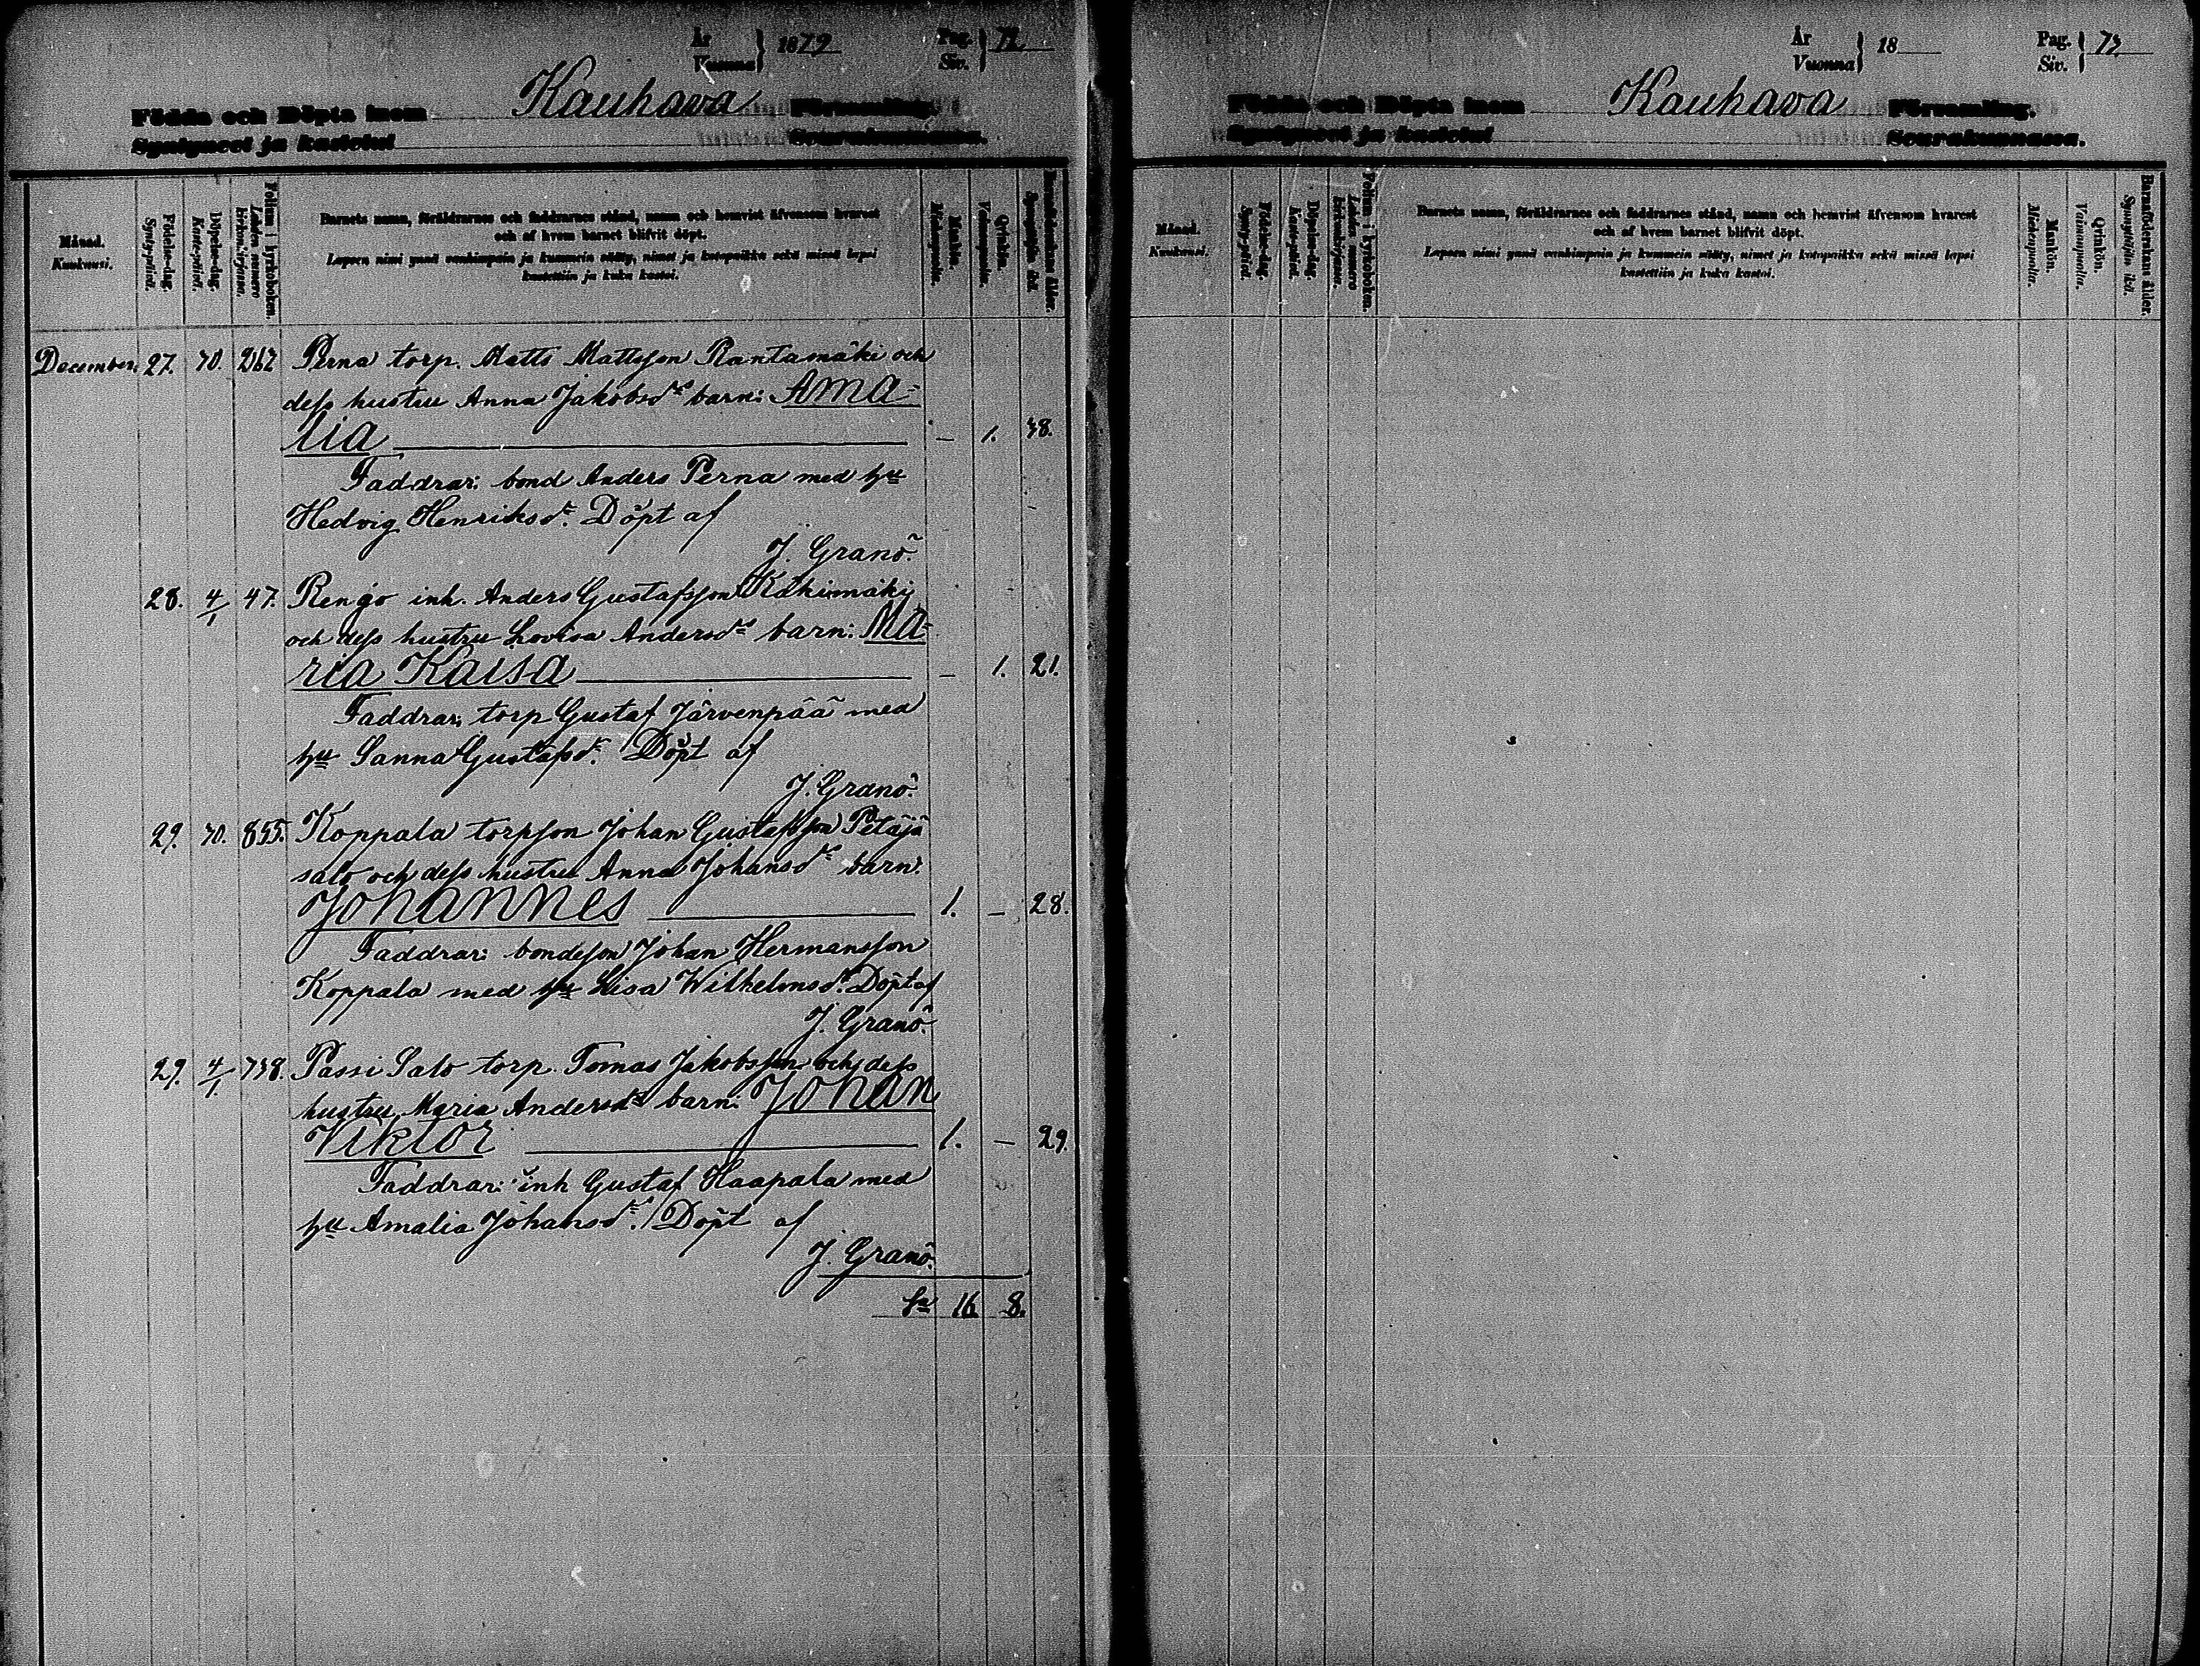 År
Vuonna } 1879
Pag.
Siv. } 72
Födda och Döpta inom Kauhava Församling.
Syntyneet ja kastetut Seurakunnassa.
Månad.
Kuukausi.
Födelse-dag.
Syntypäivä.
Döpelse-dag.
Kaste-päivä.
Folium i kyrkoboken.
Lehden numero kirkonkirjassa.
Barnets namn, föräldrarnes och faddrarnes stånd, namn och hemvist äfvensom hvarest
och af hvem barnet blifvit döpt.
Lapsen nimi ynnä vanhimpain ja kummein sääty, nimet ja kotopaikka sekä missä lapsi
kastettiin ja kuka kastoi.
Mankön.
Miehenpuolia.
Qvinkön.
Vaimonpuolia.
Barnaföderskans ålder.
Synnyttäjän ikä.
December 27. 30. 262 Perna torp. Matts Mattsson Rantamäki och
dess hustru Anna Jakobsdr barn: Ama=
lia — 1. 38.
Faddrar: bond Anders Perna med hu
Hedvig Henriksdr. Döpt af
J. Granö.
28. 4/1 47. Rengo inh. Anders Gustafsson
och dess hustru Lovisa Andersdr barn: Ma=
ria Kaisa — 1. 21.
Faddrar: torp Gustaf Järvenpää med
hu Sanna Gustafsdr. Döpt af
J. Granö.
29. 30. 855. Koppala torpson Johan Gustafsson Petäjä
salo och dess hustru Anna Johansdr barn:
Johannes 1. — 28.
Faddrar: bondeson Johan Hermansson
Koppala med hu Lisa Wilhelmsdr. Döpt af
J. Granö.
29. 4/1 738. Passi Salo torp. Tomas Jakobsson och dess
hustru Maria Andersdr barn: Johan
Viktor 1. — 29.
Faddrar: inh Gustaf Haapala med
hu Amalia Johansdr. Döpt af
J. Granö.
Sa 16 8.
År
Vuonna } 18
Pag.
Siv. } 73
Födda och Döpta inom Kauhava Församling.
Syntyneet ja kastetut Seurakunnassa.
Månad.
Kuukausi.
Födelse-dag.
Synty-päivä.
Döpelse-dag.
Kaste-päivä.
Folium i kyrkoboken.
Lehden numero kirkonkirjassa.
Barnets namn, föräldrarnes och faddrarnes stånd, namn och hemvist äfvensom hvarest
och af hvem barnet blifvit döpt.
Lapsen nimi ynnä vanhimpain ja kummein sääty, nimet ja kotopaikka sekä missä lapsi
kastettiin ja kuka kastoi.
Mankön.
Miehenpuolia.
Qvinkön.
Vaimonpuolia.
Barnaföderskans ålder.
Synnyttäjän ikä.